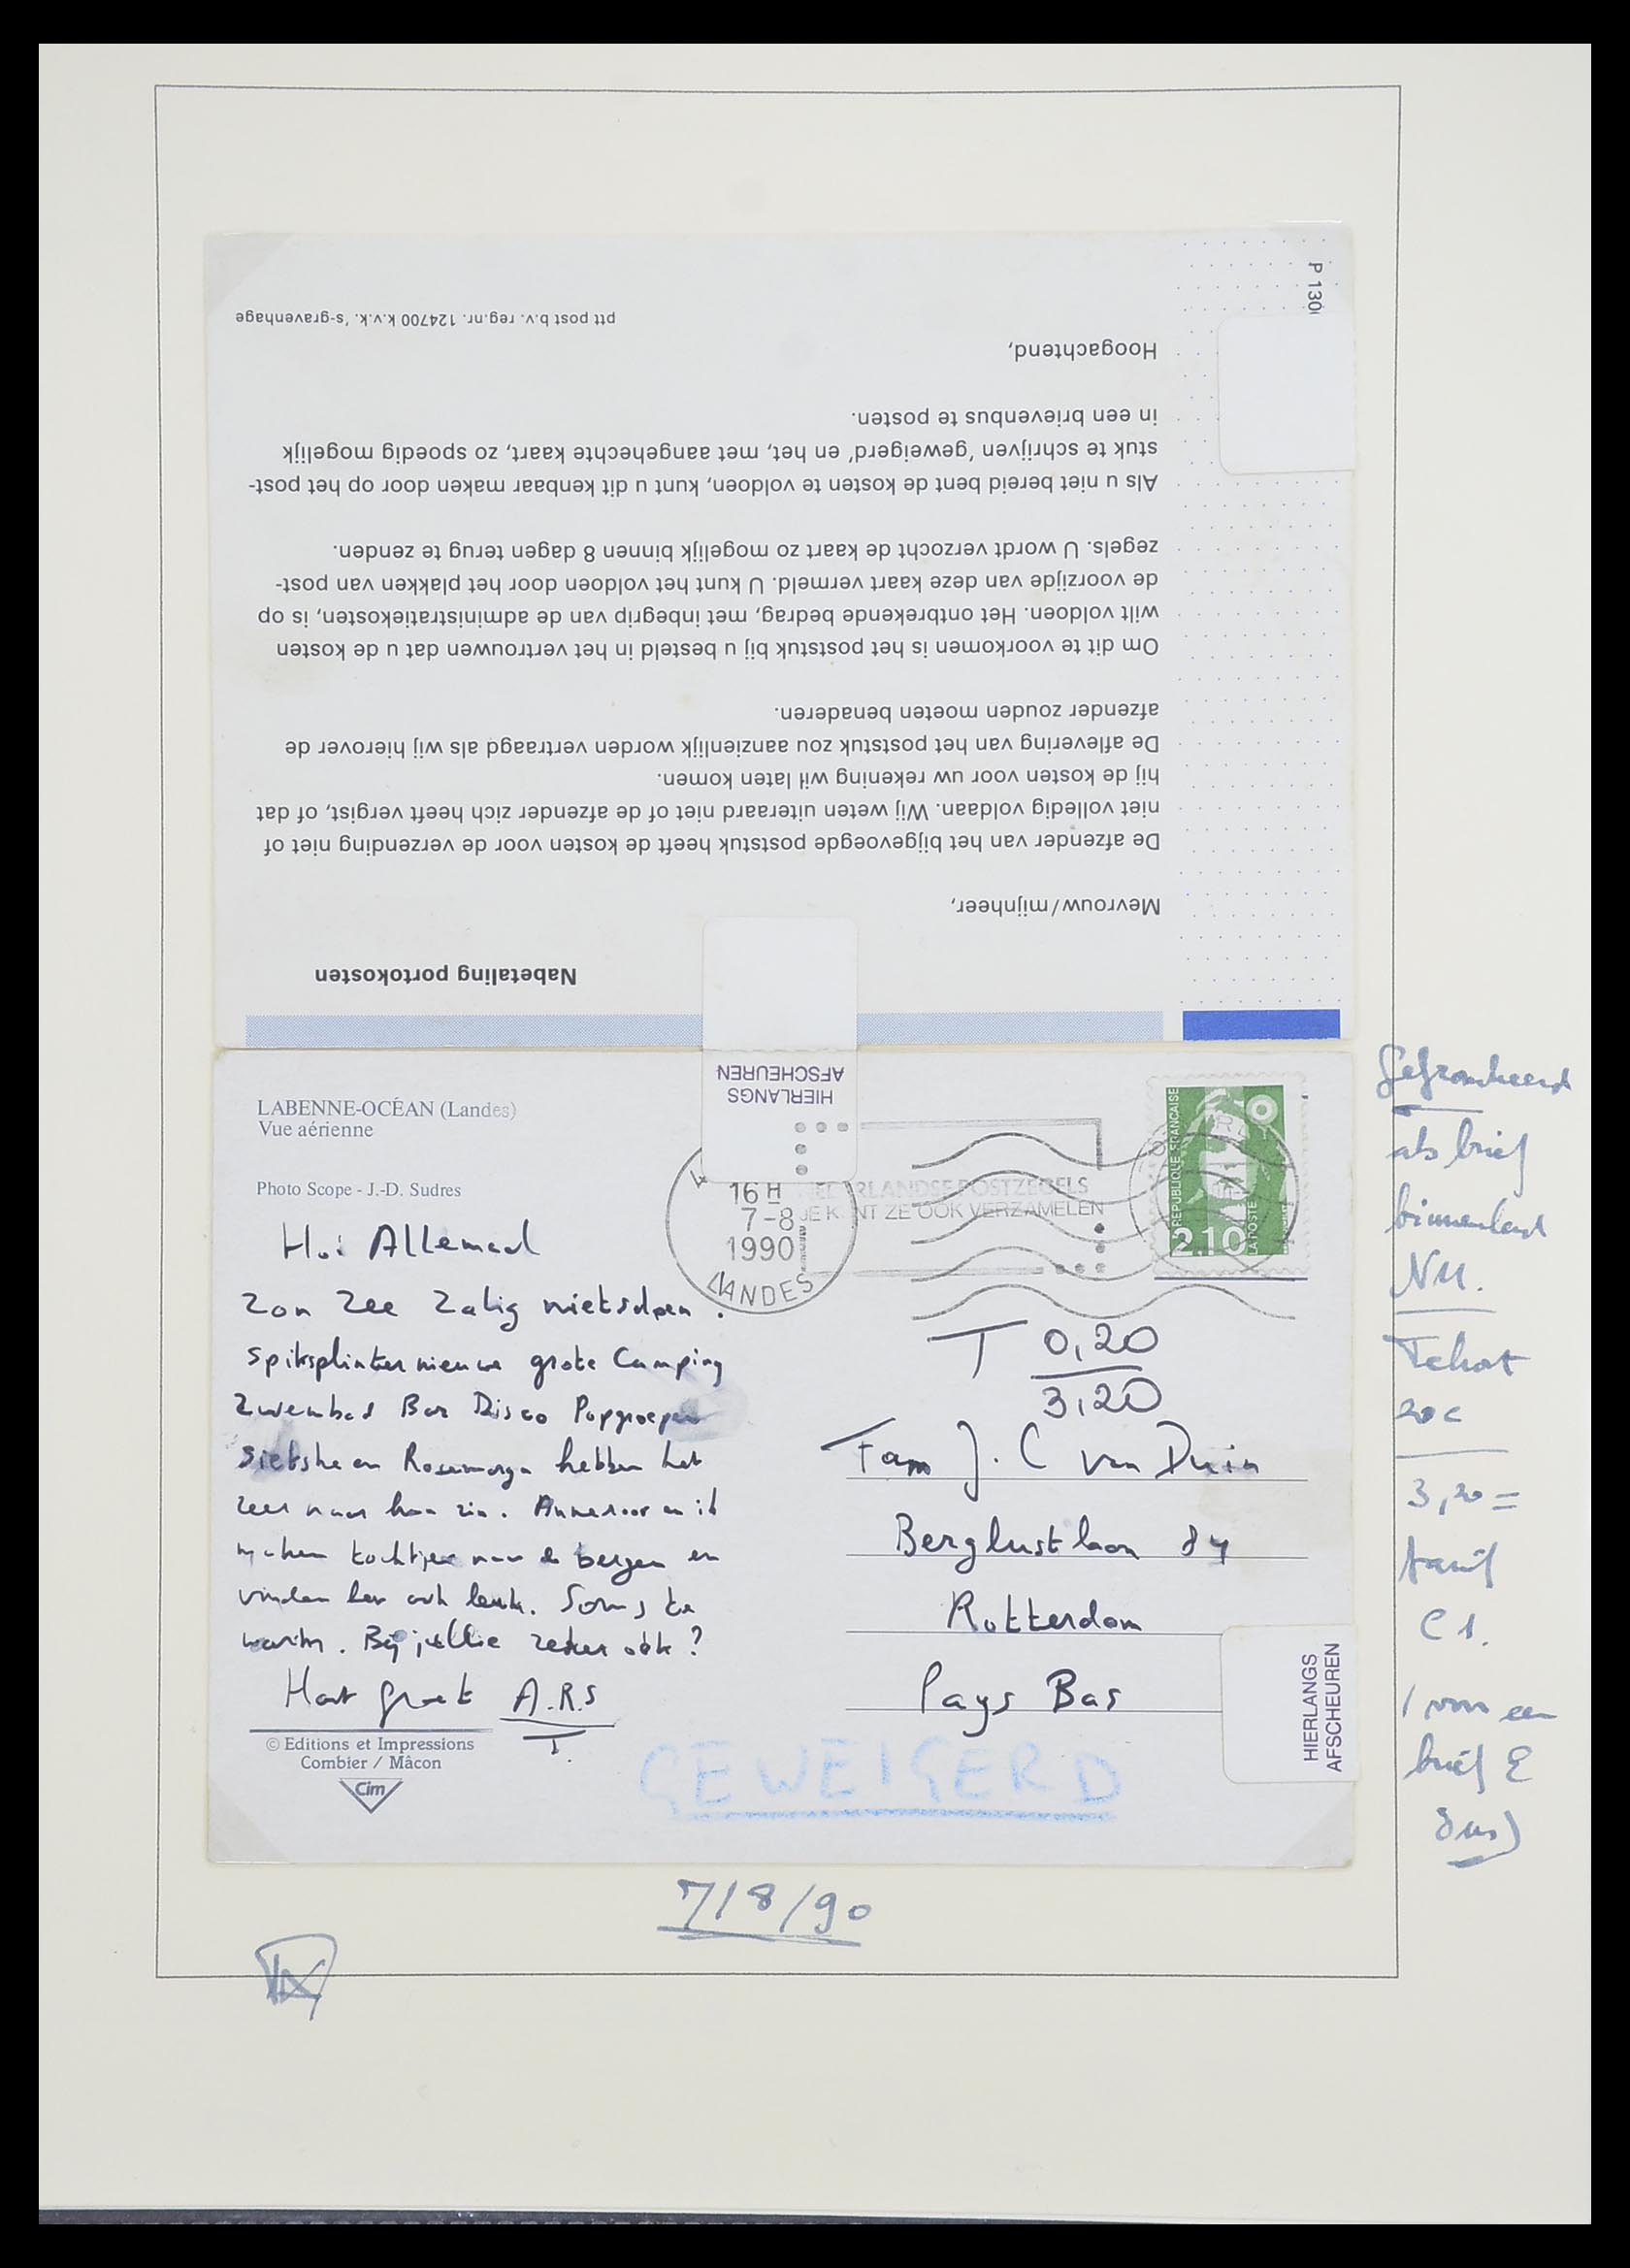 P 130
Nabetaling portokosten
Mevrouw/mijnheer,
De afzender van het bijgevoegde poststuk heeft de kosten voor de verzending niet of
niet volledig voldaan. Wij weten uiteraard niet of de afzender zich heeft vergist, of dat
hij de kosten voor uw rekening wil laten komen.
De aflevering van het poststuk zou aanzienlijk worden vertraagd als wij hierover de
afzender zouden moeten benaderen.
Om dit te voorkomen is het poststuk bij u besteld in het vertrouwen dat u de kosten
wilt voldoen. Het ontbrekende bedrag, met inbegrip van de administratiekosten, is op
de voorzijde van deze kaart vermeld. U kunt het voldoen door het plakken van post-
zegels. U wordt verzocht de kaart zo mogelijk binnen 8 dagen terug te zenden.
Als u niet bereid bent de kosten te voldoen, kunt u dit kenbaar maken door op het post-
stuk te schrijven 'geweigerd' en het, met aangehechte kaart, zo spoedig mogelijk
in een brievenbus te posten.
Hoogachtend,
ptt post b.v. reg.nr. 124700 k.v.k. 's-gravenhage
HIERLANGS
AFSCHEUREN
LABENNE-OCÉAN (Landes)
Vue aérienne
Photo Scope - J.-D. Sudres
16 H
7-8
1990
LANDES
NEDERLANDSE POSTZEGELS
JE KUNT ZE OOK VERZAMELEN
REPUBLIQUE FRANÇAISE
LA POSTE
2.10
Hoi Allemaal
Zon Zee Zalig nietsdoen.
Spiksplinternieuwe grote Camping
Zwembad Bar Disco Popgroepen
Sietske en hebben het
zeer naar hun zin. en ik
maken tochtjes naar de bergen en
vinden het ook leuk. Soms te
warm. Bij jullie zeker ook?
Hart groet A.R.S
T.
© Editions et Impressions
Combier / Mâcon
Cim
T 0,20
3,20
Fam J. C van Duin
Berglustlaan 84
Rotterdam
Pays Bas
HIERLANGS
AFSCHEUREN
GEWEIGERD
7/8/90
Gefrankeerd
als brief
binnenland
Tekort
20c
3,20 =
tarief
C 1.
(van een
brief E